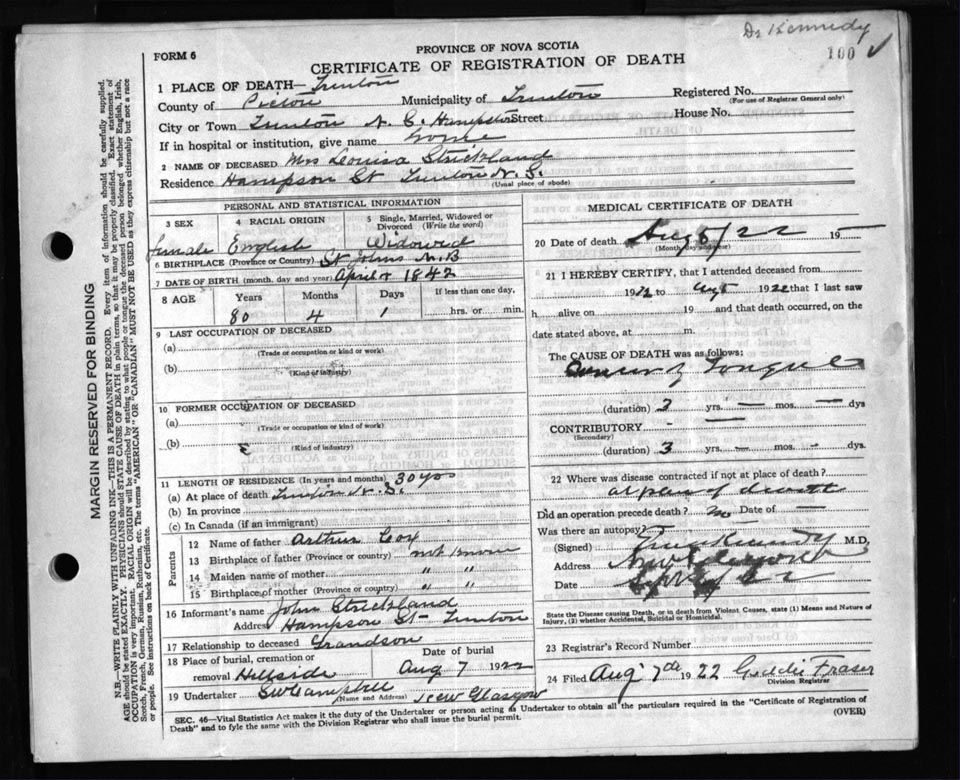 Dr Kennedy
100 ✓
FORM 6
PROVINCE OF NOVA SCOTIA
CERTIFICATE OF REGISTRATION OF DEATH
1 PLACE OF DEATH— Trenton
County of Pictou Municipality of Trenton
Registered No.
(For use of Registrar General only)
City or Town Trenton N. S. Hampson Street House No.
If in hospital or institution, give name home
2 NAME OF DECEASED Mrs Louisa Strickland
Residence Hampson St Trenton N. S.
(Usual place of abode)
PERSONAL AND STATISTICAL INFORMATION
3 SEX female
4 RACIAL ORIGIN English
5 Single, Married, Widowed or Divorced (Write the word) Widowed
6 BIRTHPLACE (Province or Country) St Johns N.B
7 DATE OF BIRTH (month, day and year) April 4 1842
8 AGE Years 80 Months 4 Days 1
If less than one day, hrs. or min.
9 LAST OCCUPATION OF DECEASED
(a)
(Trade or occupation or kind or work)
(b)
(Kind of industry)
10 FORMER OCCUPATION OF DECEASED
(a)
(Trade or occupation or kind of work)
(b)
(Kind of industry)
11 LENGTH OF RESIDENCE (In years and months) 30 yrs
(a) At place of death Trenton N. S.
(b) In province
(c) In Canada (if an immigrant)
Parents
12 Name of father Arthur Cox
13 Birthplace of father (Province or country) not known
14 Maiden name of mother " "
15 Birthplace of mother (Province or country) " "
16 Informant's name John Strickland
Address Hampson St - Trenton
17 Relationship to deceased Grandson
18 Place of burial, cremation or removal Hillside
Date of burial Aug 7 1922
19 Undertaker SW Campbell New Glasgow
(Name and Address)
MEDICAL CERTIFICATE OF DEATH
20 Date of death Aug 5/22 19
(Month, day and year)
21 I HEREBY CERTIFY, that I attended deceased from
19 to Aug 5 1922 that I last saw
h alive on 19 and that death occurred, on
date stated above, at m.
The CAUSE OF DEATH was as follows:
Cancer of Tongue
(duration) 3 yrs. — mos. — dys
CONTRIBUTORY —
(Secondary)
(duration) 3 yrs. — mos. — dys.
22 Where was disease contracted if not at place of death?
at place of death
Did an operation precede death? no Date of —
Was there an autopsy?
(Signed) Kennedy M.D.
Address New Glasgow
Date
State the Disease causing Death, or in death from Violent Causes, state (1) Means and Nature of Injury, (2) whether Accidental, Suicidal or Homicidal.
23 Registrar's Record Number
24 Filed Aug 7th 1922 Goddie Fraser
Division Registrar
SEC. 46—Vital Statistics Act makes it the duty of the Undertaker or person acting as Undertaker to obtain all the particulars required in the "Certificate of Registration of
Death" and to fyle the same with the Division Registrar who shall issue the burial permit.
(OVER)
MARGIN RESERVED FOR BINDING
N.B.—WRITE PLAINLY WITH UNFADING INK—THIS IS A PERMANENT RECORD. Every item of information should be carefully supplied.
AGE should be stated EXACTLY. PHYSICIANS should STATE CAUSE OF DEATH in plain terms, so that it may be properly classified. Exact statement of
OCCUPATION is very important. RACIAL ORIGIN will be described by stating to what people or tongue the deceased person belonged whether English, Irish,
Scotch, French, German, Russian, Ruthenian, etc. The terms "AMERICAN" OR "CANADIAN" MUST NOT BE USED as they express citizenship but not a race
or people. See instructions on back of Certificate.